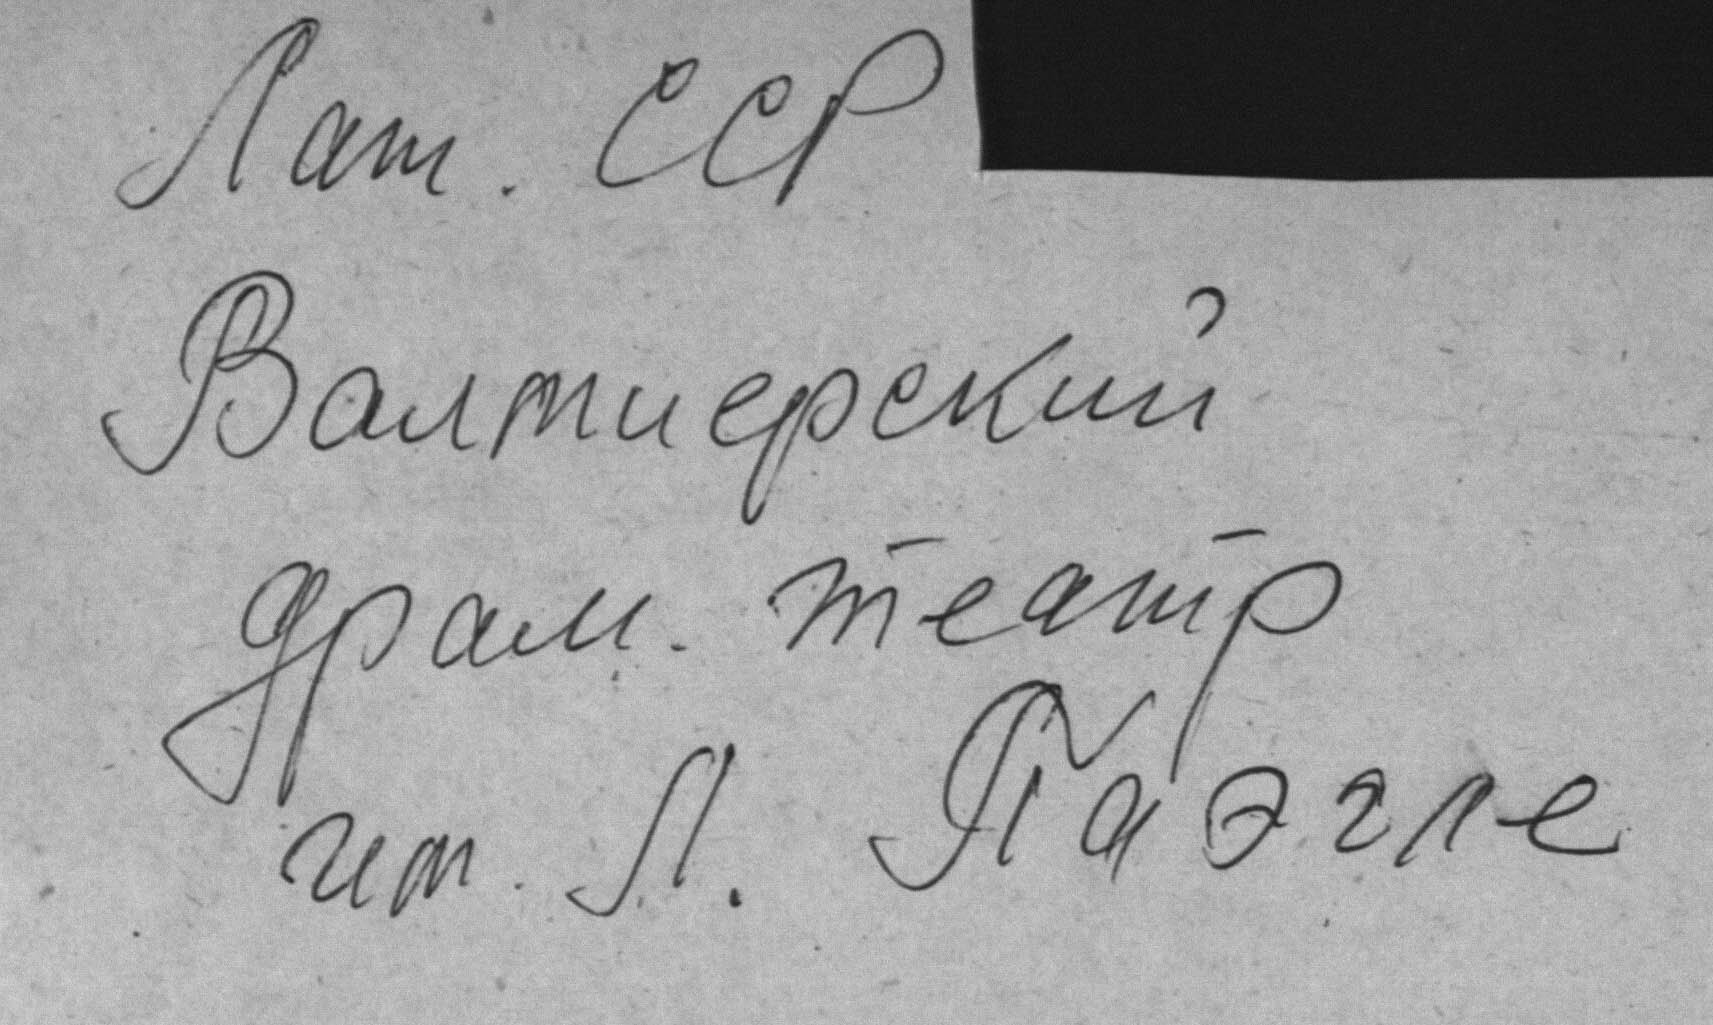 Лат. ССР
Валтиерский
драм. театр
им. Л. Паэгле